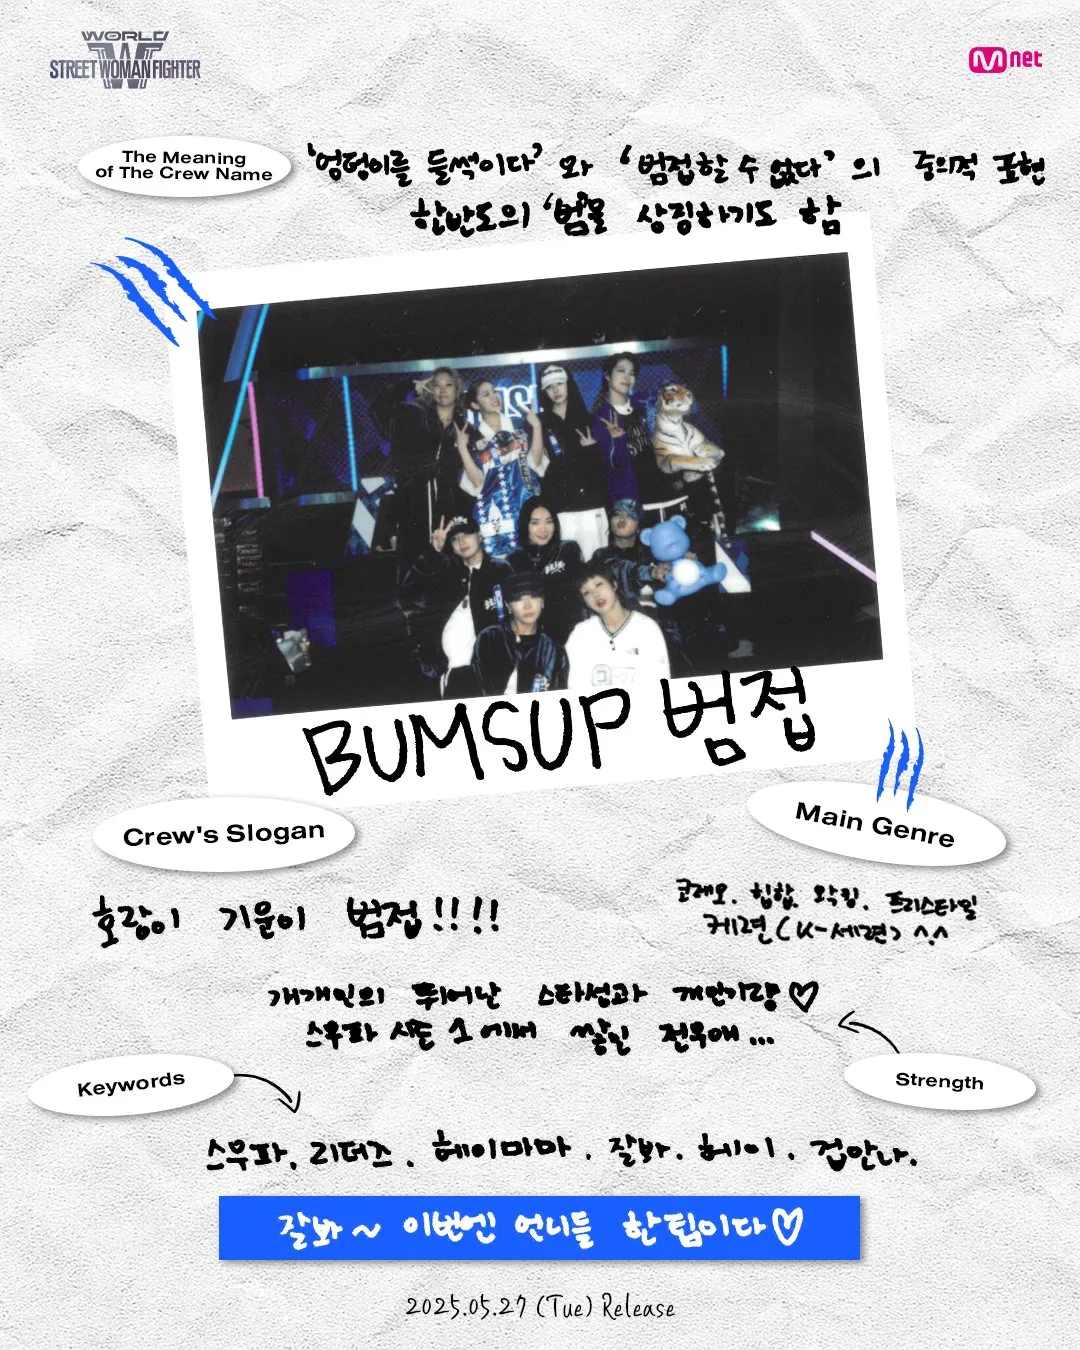 WORLD
W
STREET WOMAN FIGHTER
Mnet
The Meaning
of The Crew Name
'엉덩이를 들썩이다' 와 '범접할 수 없다' 의 중의적 표현
한반도의 '범'을 상징하기도 함
BUMSUP 범접
Crew's Slogan
Main Genre
호랑이 기운이 범접!!!!
코레오. 힙합. 왁킹. 프리스타일
케련(K-세련) ^.^
개개인의 뛰어난 스타성과 개인기량♡
스우파 시즌 1에서 쌓인 전우애...
Keywords
Strength
스우파. 리더즈. 헤이마마. 잘봐. 헤이. 겁안나.
잘봐~ 이번엔 언니들 한팀이다♡
2025.05.27 (Tue) Release